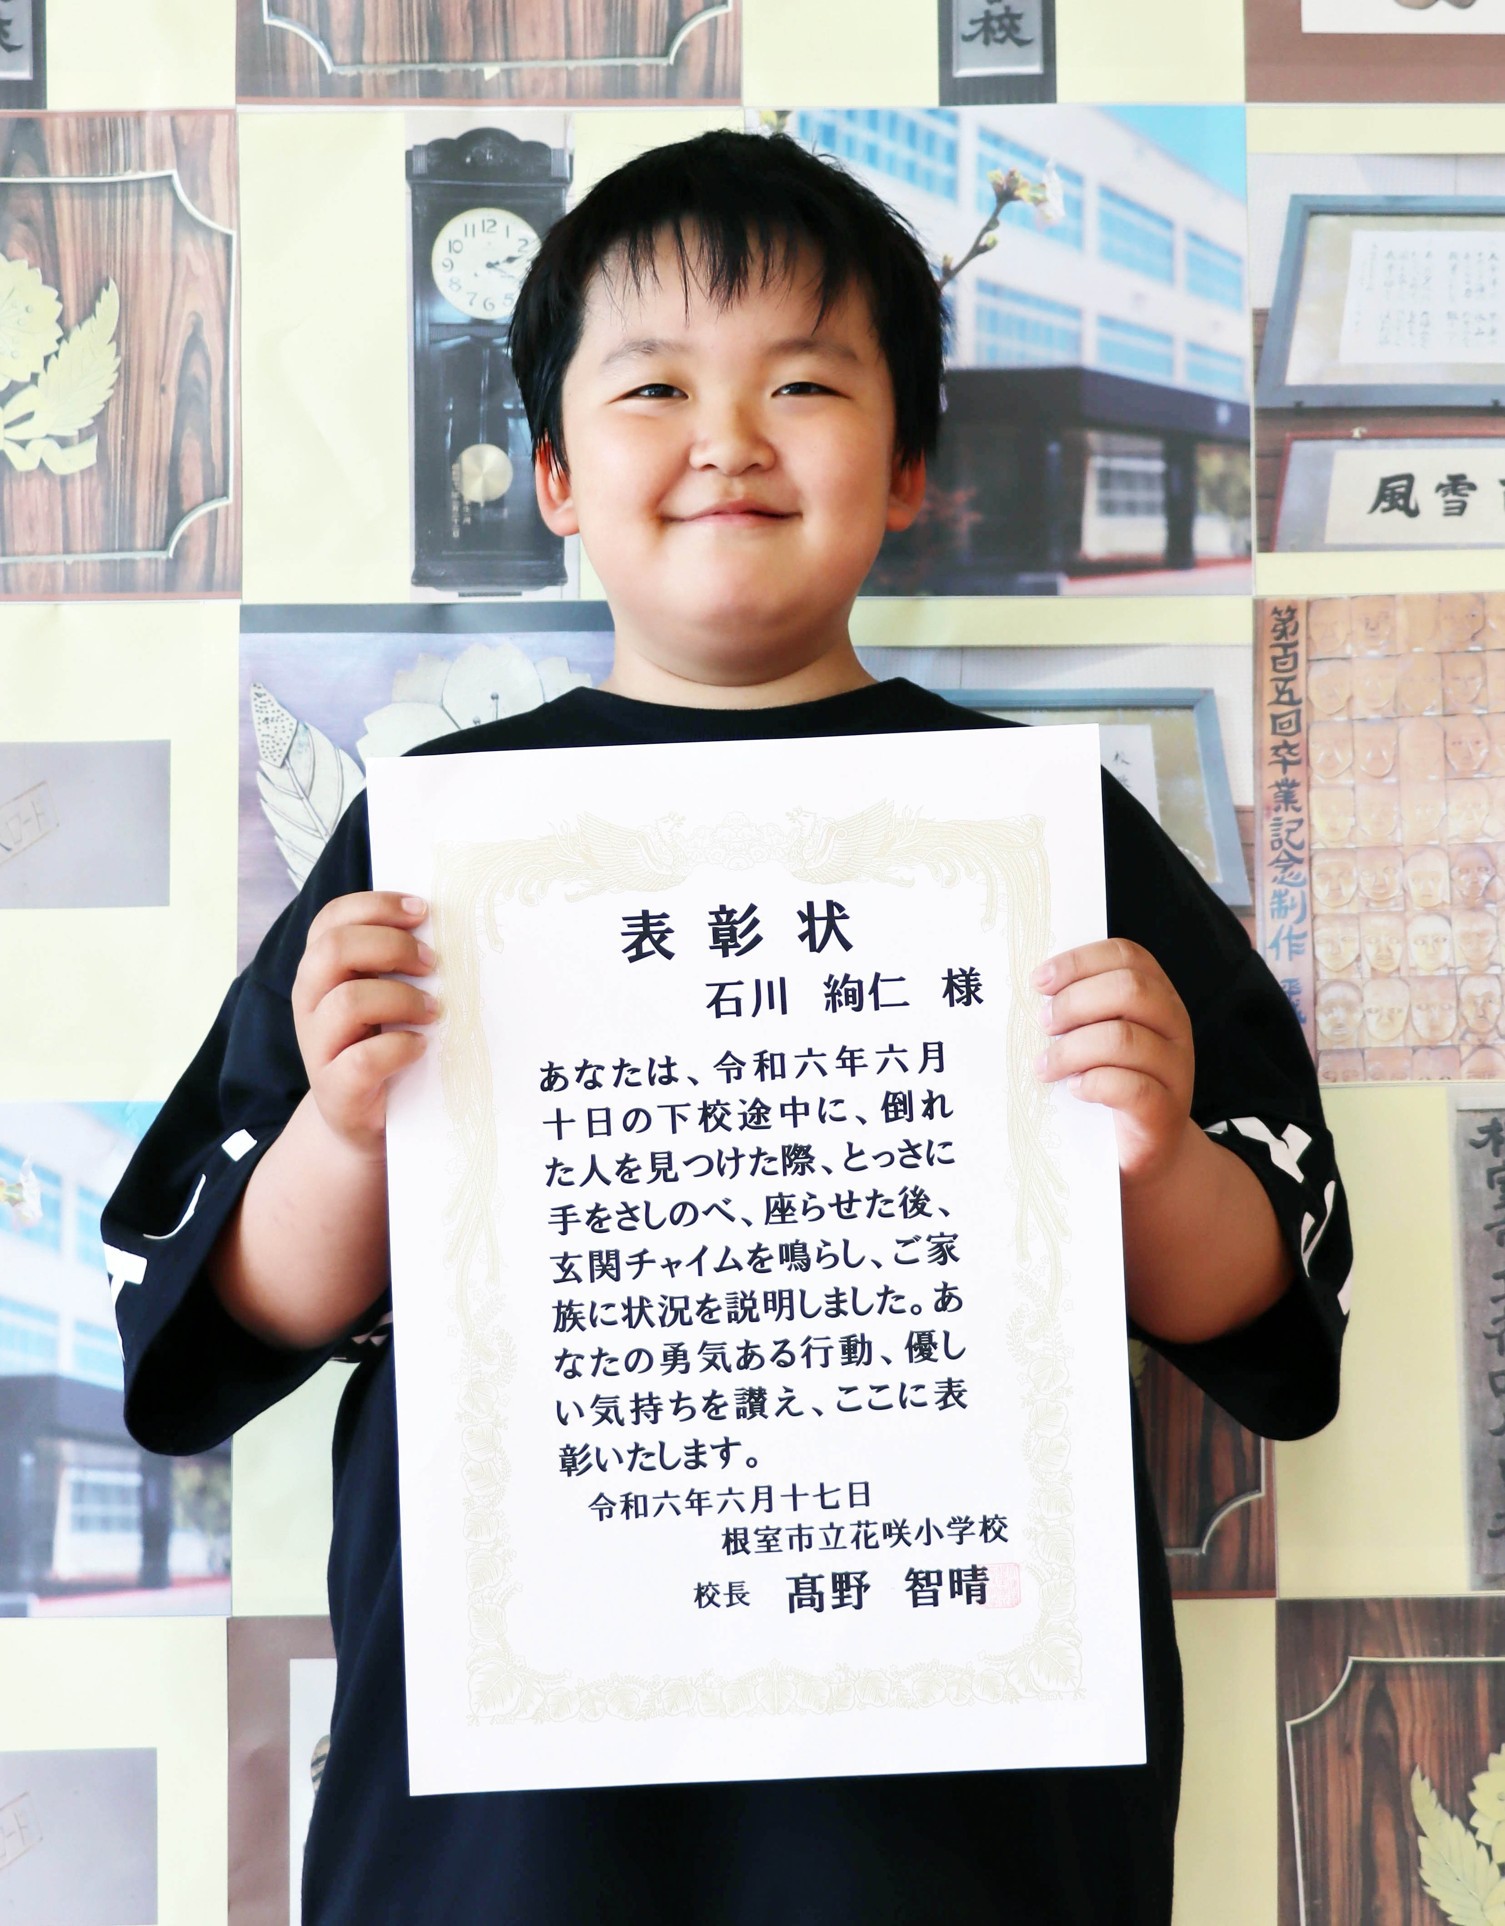 校
12
11
1
10
2
9
8
7
6
5
風雪
第百五回卒業記念制作
表彰状
石川 絢仁 様
あなたは、令和六年六月
十日の下校途中に、倒れ
た人を見つけた際、とっさに
手をさしのべ、座らせた後、
玄関チャイムを鳴らし、ご家
族に状況を説明しました。あ
なたの勇気ある行動、優し
い気持ちを讃え、ここに表
彰いたします。
令和六年六月十七日
根室市立花咲小学校
校長 髙野 智晴